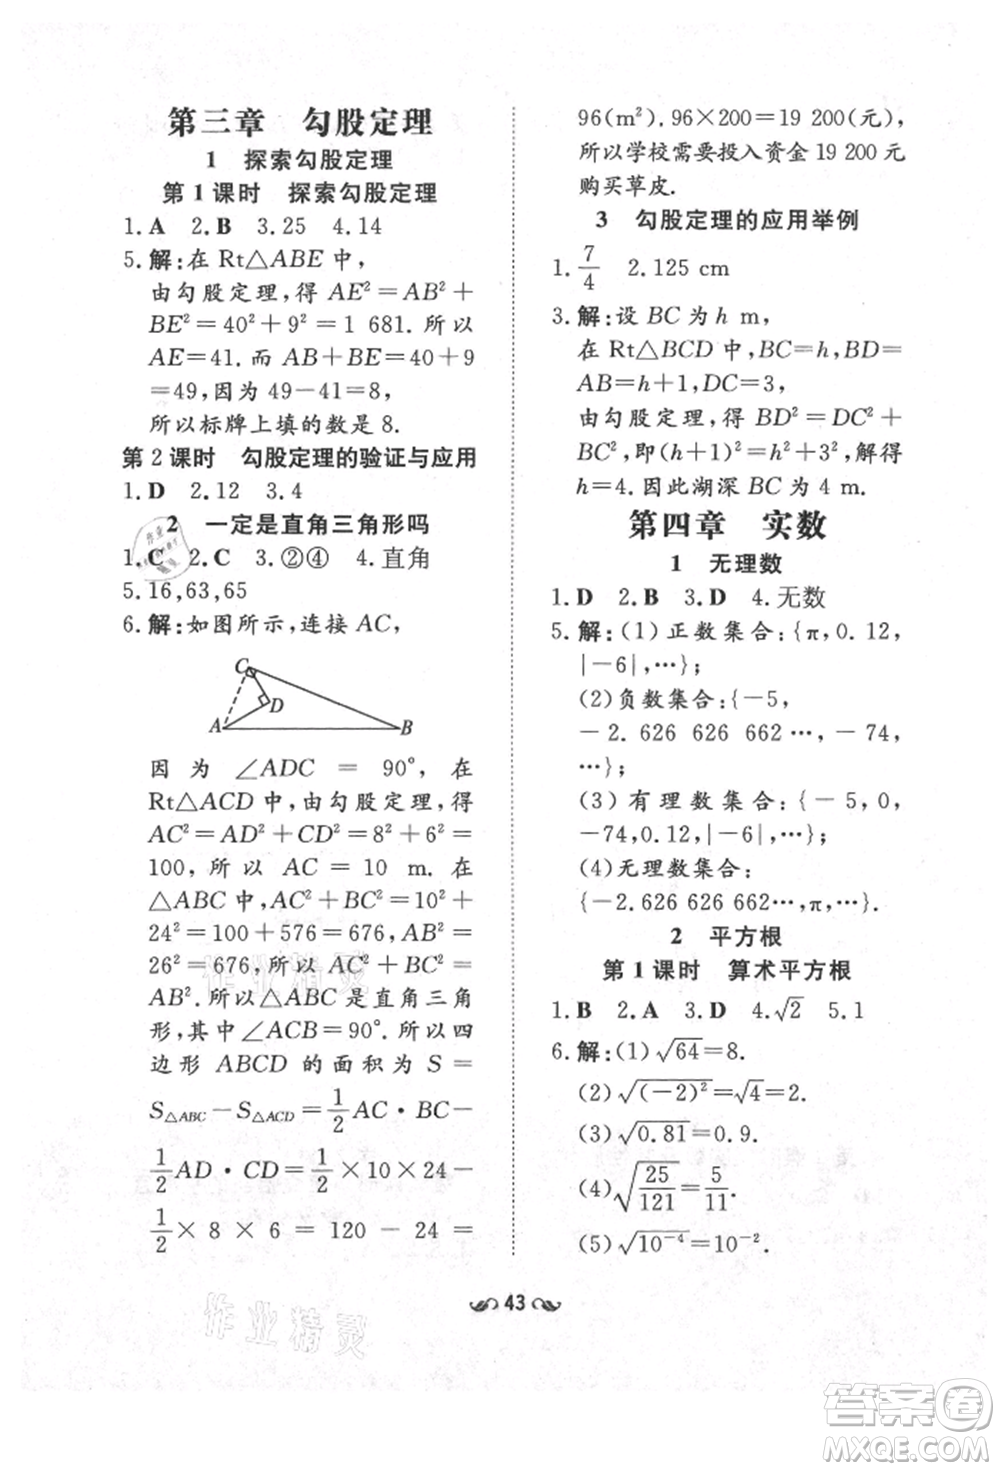 第三章　勾股定理
1　探索勾股定理
第1课时　探索勾股定理
1.A　2.B　3.25　4.14
5.解:在 Rt△ABE 中,
由勾股定理,得 AE²=AB²+
BE²=40²+9²=1 681.所以
AE=41.而 AB+BE=40+9
=49,因为 49-41=8,
所以标牌上填的数是 8.
第2课时　勾股定理的验证与应用
1.D　2.12　3.4
2　一定是直角三角形吗
1.C　2.C　3.②④　4.直角
5.16,63,65
6.解:如图所示,连接 AC,
C
D
A　B
因为 ∠ADC = 90°,在
Rt△ACD 中,由勾股定理,得
AC²=AD²+CD²=8²+6²=
100,所以 AC=10 m.在
△ABC 中,因为 AC²+BC²=
10²+24²=100+576=676,AB²=
26²=676,所以 AC²+BC²=
AB².所以△ABC 是直角三角
形,其中∠ACB=90°.所以四
边形 ABCD 的面积为 S=
S△ABC-S△ACD=1/2 AC·BC-
1/2 AD·CD=1/2×10×24-
1/2×8×6=120-24=
96(m²).96×200=19 200(元),
所以学校需要投入资金 19 200元
购买草皮.
3　勾股定理的应用举例
1.7/4　2.125 cm
3.解:设 BC 为 h m,
在 Rt△BCD 中,BC=h,BD=
AB=h+1,DC=3,
由勾股定理,得 BD²=DC²+
BC²,即(h+1)²=h²+3²,解得
h=4.因此湖深 BC 为 4 m.
第四章　实数
1　无理数
1.D　2.B　3.D　4.无数
5.解:(1)正数集合:{π,0.12,
|-6|,…};
(2)负数集合:{-5,
-2.626 626 662…,-74,
…};
(3)有理数集合:{-5,0,
-74,0.12,|-6|,…};
(4)无理数集合:
{-2.626 626 662…,π,…}.
2　平方根
第1课时　算术平方根
1.B　2.A　3.D　4.√2　5.1
6.解:(1)√64=8.
(2)√(-2)²=√4=2.
(3)√0.81=0.9.
(4)√25/121=5/11.
(5)√10⁻⁴=10⁻².
43
作业精灵
作业精灵
答案卷
MXQE.COM